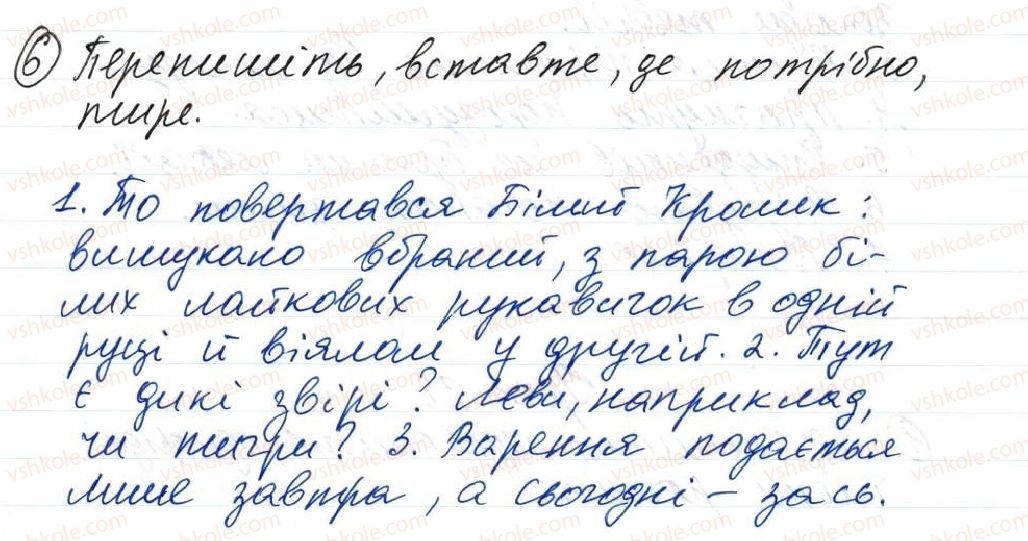 6 Перепишіть, вставте, де потрібно,
тире.
1. То повертався Білий Кролик:
вишукано вбраний, з парою бі-
лих лайкових рукавичок в одній
руці й віялом у другій. 2. Тут
є дикі звірі? Леви, наприклад,
чи тигри? 3. Варення подається
лише завтра, а сьогодні – зась.
vshkole.com